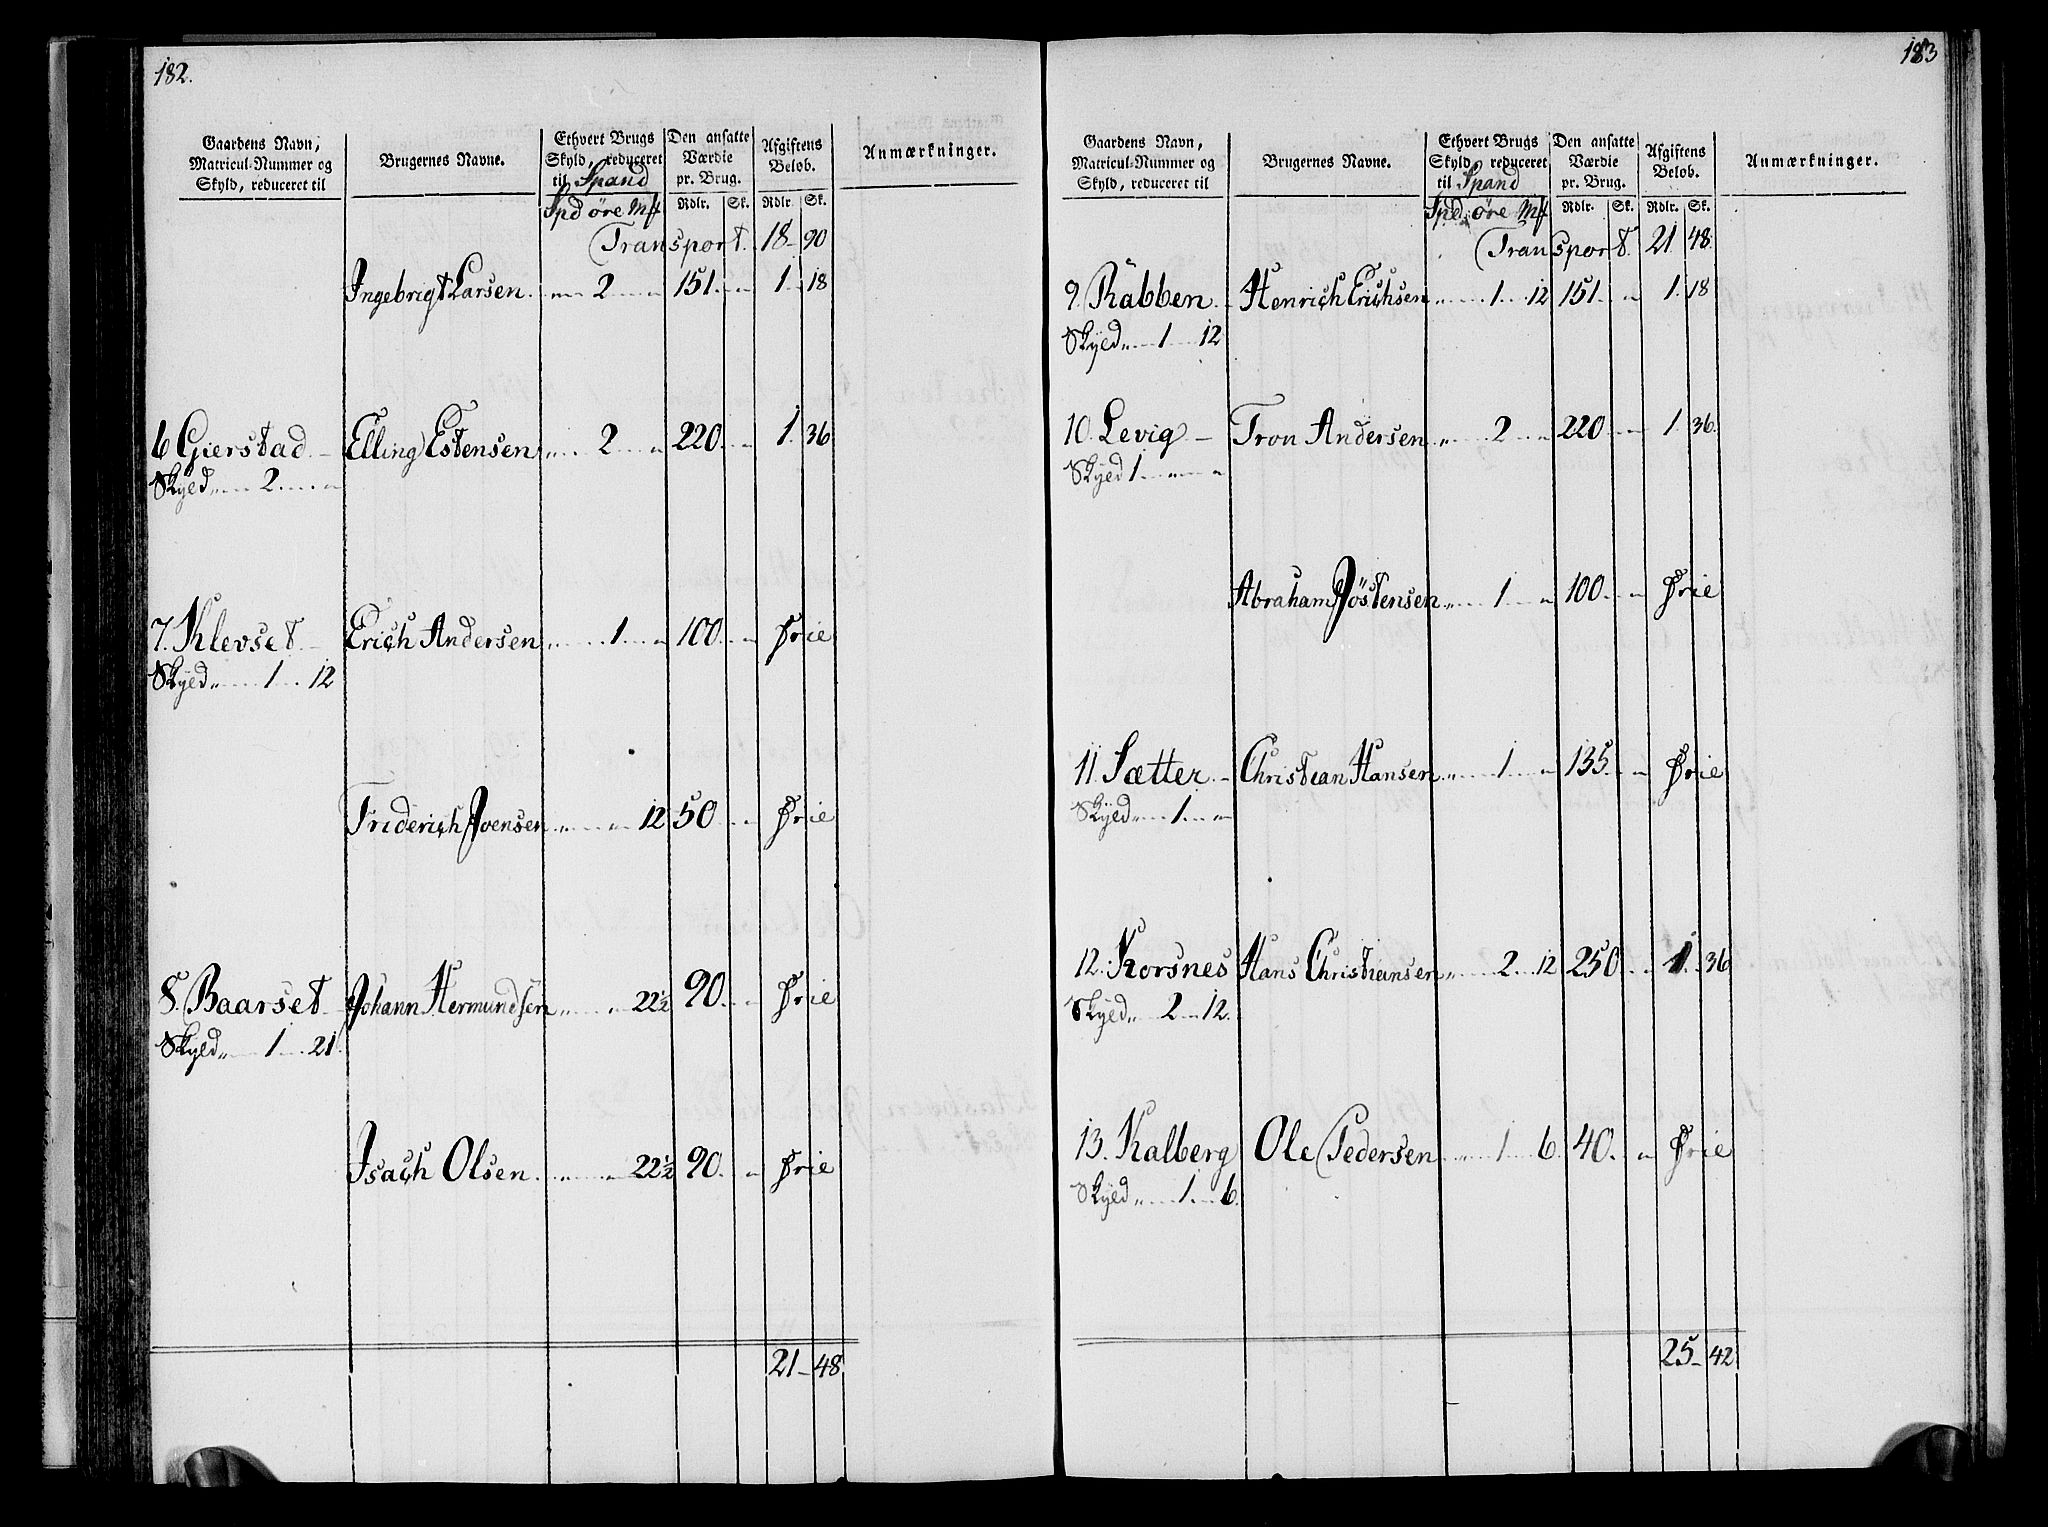 182.
Gaardens Navn, Matricul-Nummer og Skyld, reduceret til | Brugernes Navne. | Ethvert Brugs Skyld, reduceret til Spand | Den ansatte Værdie pr. Brug. | Afgiftens Beløb. | Anmærkninger.
Spd øre Mk | Rdlr. | Sk. | Rdlr. | Sk.
Transport. 18 90
Ingebrigt Larsen. „ 2 „ 151 „ 1 18
6 Gierstad Elling Estensen „ 2 „ 220 „ 1 36
Skyld „ 2 „
7. Klevset Erich Andersen „ 1 „ 100 „ Frie
Skyld „ 1 12
Friderich Joensen „ „ 12 50 „ Frie
8. Baarset Johann Hermundsen „ „ 22½ 90 „ Frie
Skyld „ 1 21
Isach Olsen. „ „ 22½ 90. „ Frie
21 48
183
Gaardens Navn, Matricul-Nummer og Skyld, reduceret til | Brugernes Navne. | Ethvert Brugs Skyld, reduceret til Spand | Den ansatte Værdie pr. Brug. | Afgiftens Beløb. | Anmærkninger.
Spd. øre Mk | Rdlr. | Sk. | Rdlr. | Sk.
Transport. 21 48
9. Rabben Henrich Erichsen „ 1 12 151 „ 1 18
Skyld „ 1 12
10. Levig Tron Andersen „ 2 „ 220 „ 1 36
Skyld 1 „ „
Abraham Jöstensen „ 1 „ 100 „ Frie
11. Sætter Christian Hansen „ 1 „ 135 „ Frie
Skyld „ 1 „
12. Korsnes Hans Christiansen „ 2 12 250 „ 1 36
Skyld „ 2 12.
13. Kalberg Ole Pedersen „ 1 6 40. „ Frie
Skyld „ 1 6.
25 42